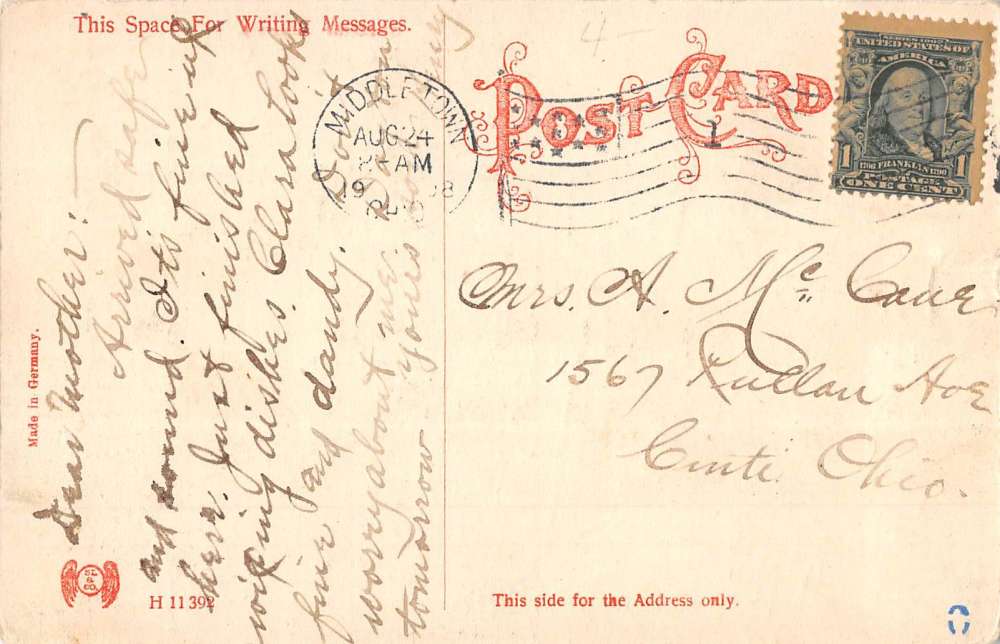 This Space For Writing Messages.
POST CARD
MIDDLETOWN
AUG 24
AM
19 8
OHIO
1
SERIES 1902
UNITED STATES OF
AMERICA
1706 FRANKLIN 1790
POSTAGE
1 1
ONE CENT
Dear Mother:
Arrived safe
and sound. Its fine up
here. Just finished
wiping dishes. Clara looks
fine and dandy. Don't
worry about me.
tomorrow yours
Mrs. A. Mc Cane
1567 Pullan Ave
Cinti Ohio.
Made in Germany.
H 11392
This side for the Address only.